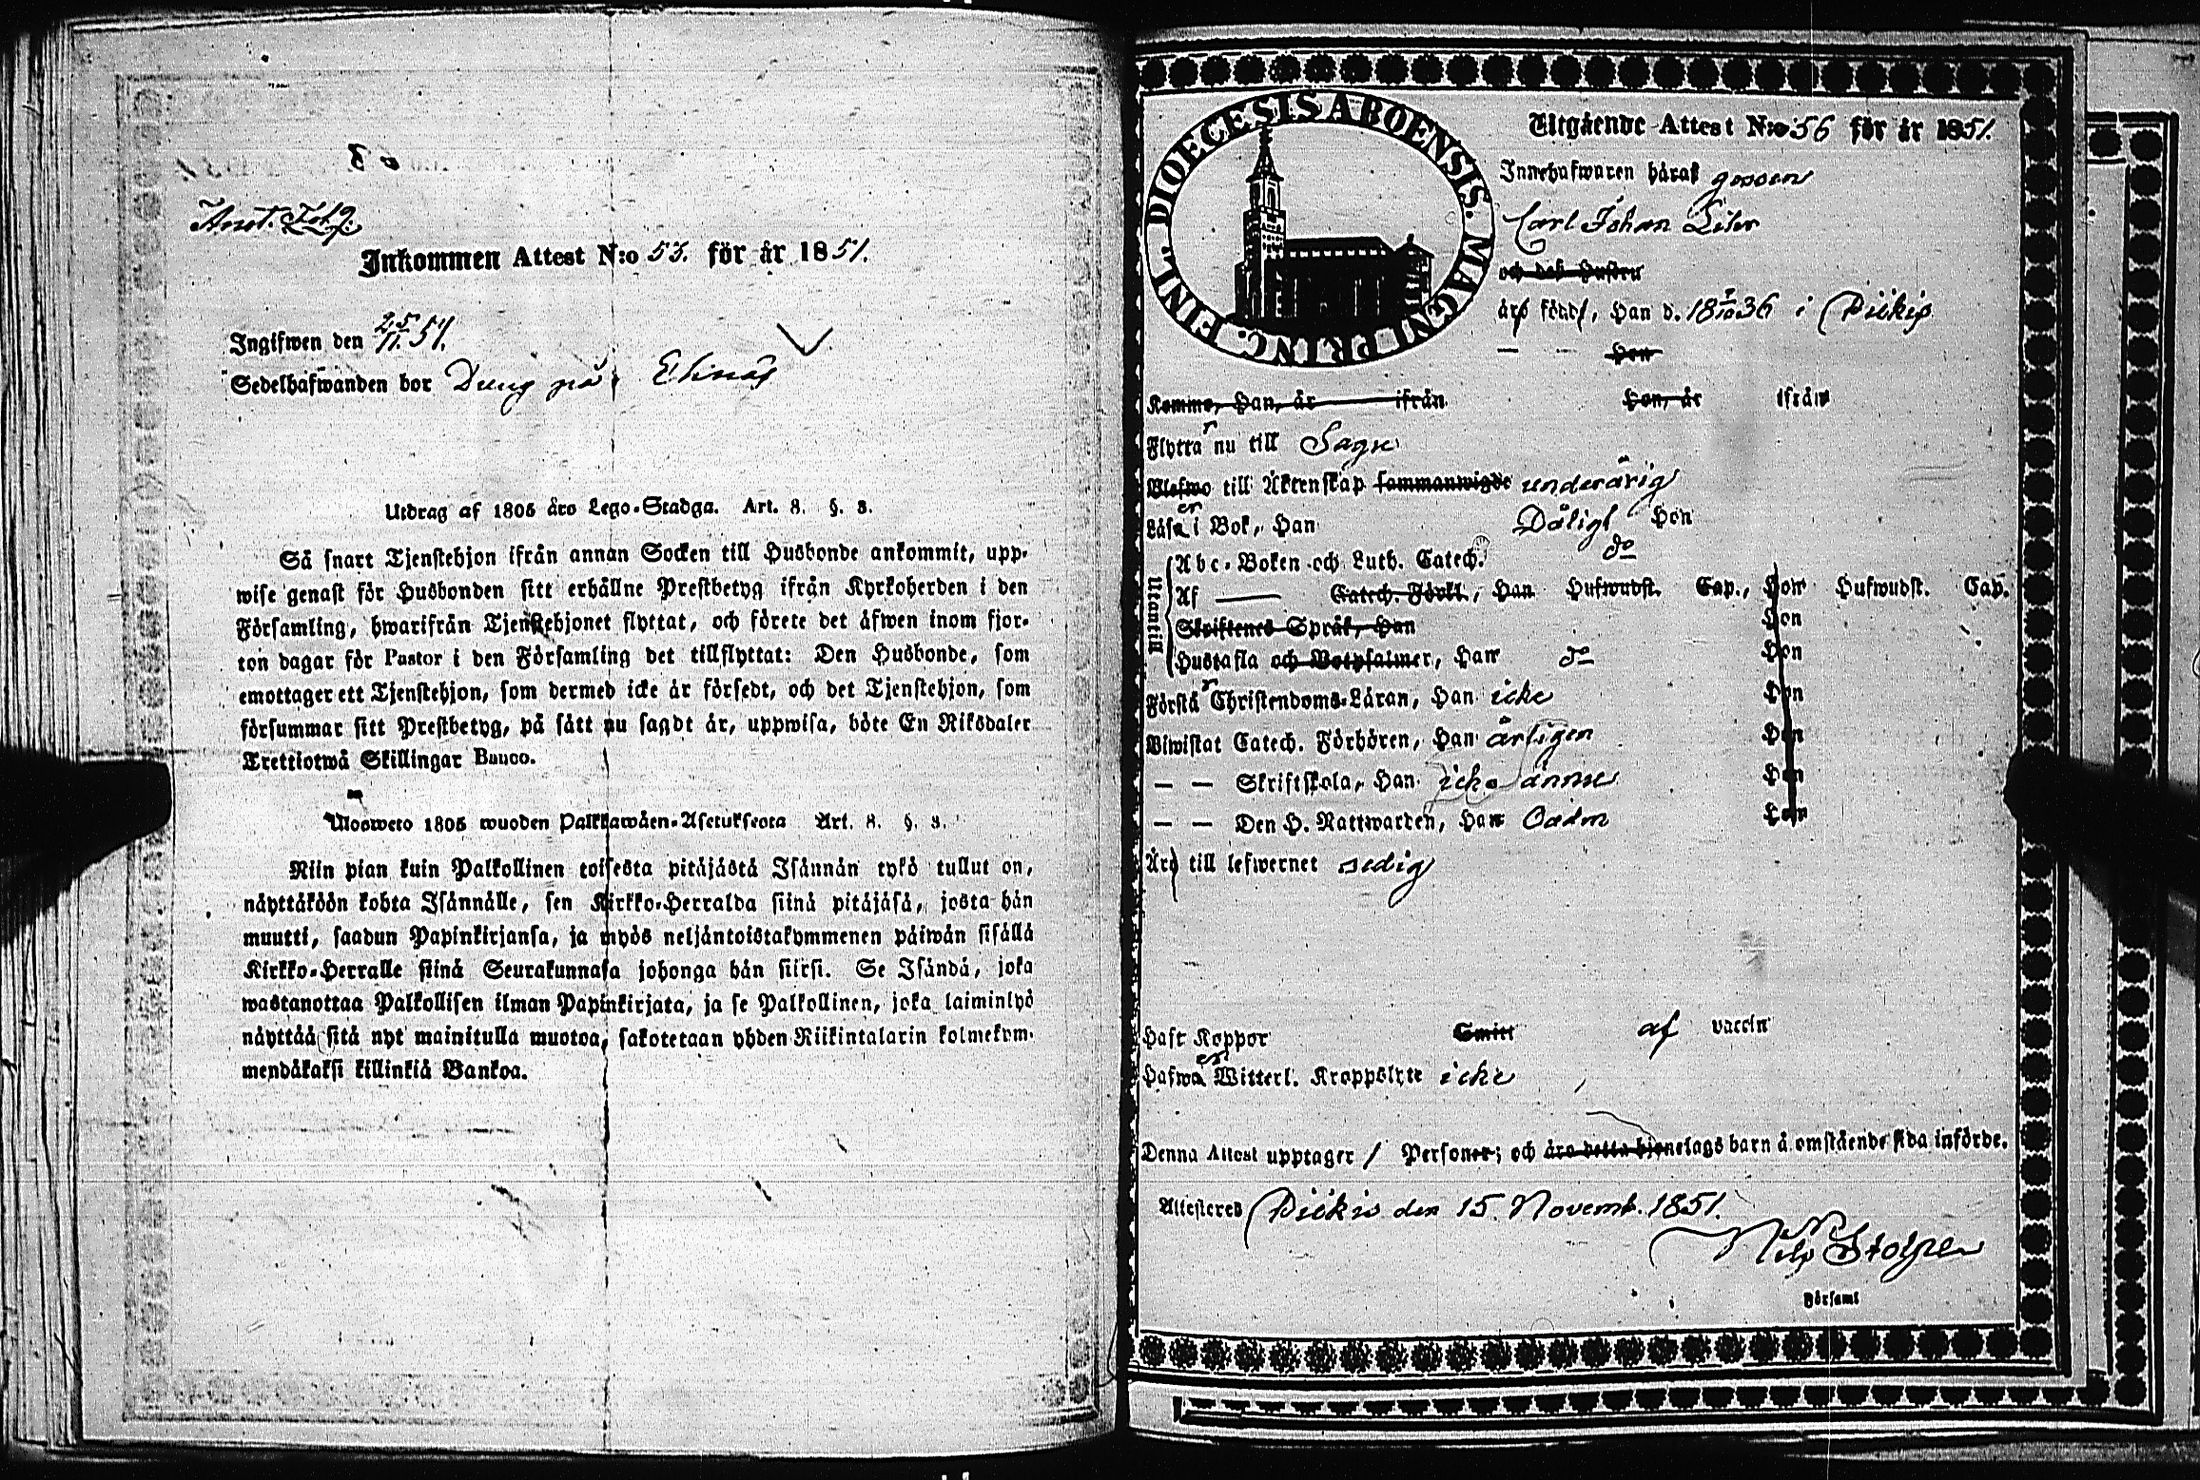 Inkommen Attest N:o 53. för år 1851.
Ingifwen den 25/11 51.
Sedelhafwanden bor på
Utdrag af 1805 års Lego-Stadga. Art. 8. §. 3.
Så snart Tjenstehjon ifrån annan Socken till Husbonde ankommit, upp-
wise genast för Husbonden sitt erhållne Prestbetyg ifrån Kyrkoherden i den
Församling, hwarifrån Tjenstehjonet flyttat, och förete det äfwen inom fjor-
ton dagar för Pastor i den Församling det tillflyttat: Den Husbonde, som
emottager ett Tjenstehjon, som dermed icke är försedt, och det Tjenstehjon, som
försummar sitt Prestbetyg, på sätt nu sagdt är, uppwisa, böte En Riksdaler
Trettiotwå Skillingar Banco.
Ulosweto 1805 wuoden Palkkawäen-Asetuksesta Art. 8. §. 3.
Niin pian kuin Palkollinen toisesta pitäjästä Isännän tykö tullut on,
näyttäköön kohta Isännälle, sen Kirkko-Herralda siinä pitäjäsä, josta hän
muutti, saadun Papinkirjansa, ja myös neljäntoistakymmenen päiwän sisällä
Kirkko-Herralle siinä Seurakunnasa johonga hän siirsi. Se Isändä, joka
wastanottaa Palkollisen ilman Papinkirjata, ja se Palkollinen, joka laiminlyö
näyttää sitä nyt mainitulla muotoa, sakotetaan yhden Riikintalarin kolmekym-
mendäkaksi killinkiä Bankoa.
FINL. DIOECESIS ABOENSIS. MAGNI PRINC.
Utgående Attest N:o 56 för år 1851.
Innehafwaren häraf gossen
Carl Johan
och deß Hustru
äro född, Han d. 18 36 i Piikis
Hon
Kommo, Han, år ifrån Hon, år ifrån
Flyttar nu till Sagu
Blefwo till Äktenskap sammanwigde underårig
Läser i Bok, Han Dåligt Hon
Utantill
Abc-Boken och Luth. Catech. do
Af Catech. Förkl., Han Hufwudst. Cap., Hon Hufwudst. Cap.
Skriftenes Språk, Han Hon
Hustafla och Botpsalmer, Han do Hon
Förstår Christendoms-Läran, Han icke Hon
Biwistat Catech. Förhören, Han årligen Hon
— — Skriftskola, Han icke ännu Hon
— — Den H. Nattwarden, Han Hon
Äro till lefwernet sedig
Haft Koppor Smitt af vaccin
Hafwer Witterl. Kroppslyte icke
Denna Attest upptager 1 Personer; och äro detta hjonelags barn å omstående sida införde.
Attesteres Piikis den 15. Novemb. 1851.
Nils Stolpe
Församl